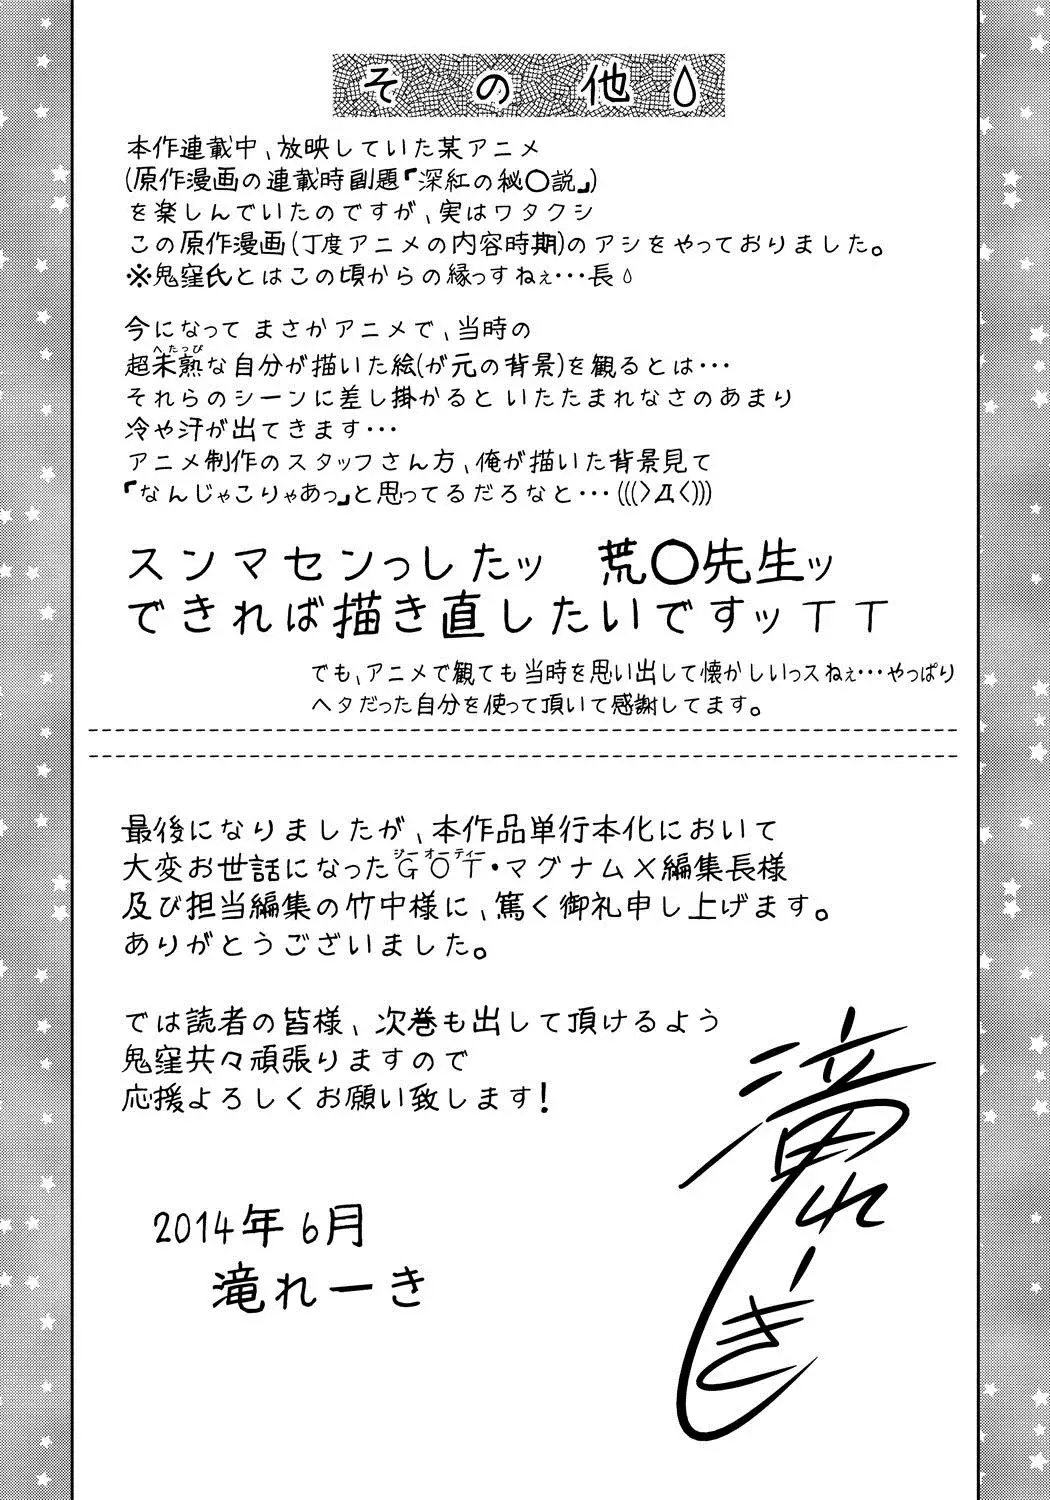 その他
本作連載中、放映していた某アニメ
(原作漫画の連載時副題『深紅の秘〇説』)
を楽しんでいたのですが、実はワタクシ
この原作漫画(丁度アニメの内容時期)のアシをやっておりました。
※鬼窪氏とはこの頃からの縁っすねぇ・・・長
今になって まさかアニメで、当時の
へたっぴ
超未熟な自分が描いた絵(が元の背景)を観るとは・・・
それらのシーンに差し掛かると いたたまれなさのあまり
冷や汗が出てきます・・・
アニメ制作のスタッフさん方、俺が描いた背景見て
『なんじゃこりゃあっ』と思ってるだろなと・・・(((>Д<)))
スンマセンっしたッ 荒〇先生ッ
できれば描き直したいですッTT
でも、アニメで観ても当時を思い出して懐かしいっスねぇ・・・やっぱり
ヘタだった自分を使って頂いて感謝してます。
最後になりましたが、本作品単行本化において
ジーオーティー
大変お世話になったGOT・マグナムX編集長様
及び担当編集の竹中様に、篤く御礼申し上げます。
ありがとうございました。
では読者の皆様、次巻も出して頂けるよう
鬼窪共々頑張りますので
応援よろしくお願い致します!
2014年6月
滝れーき
滝れーき